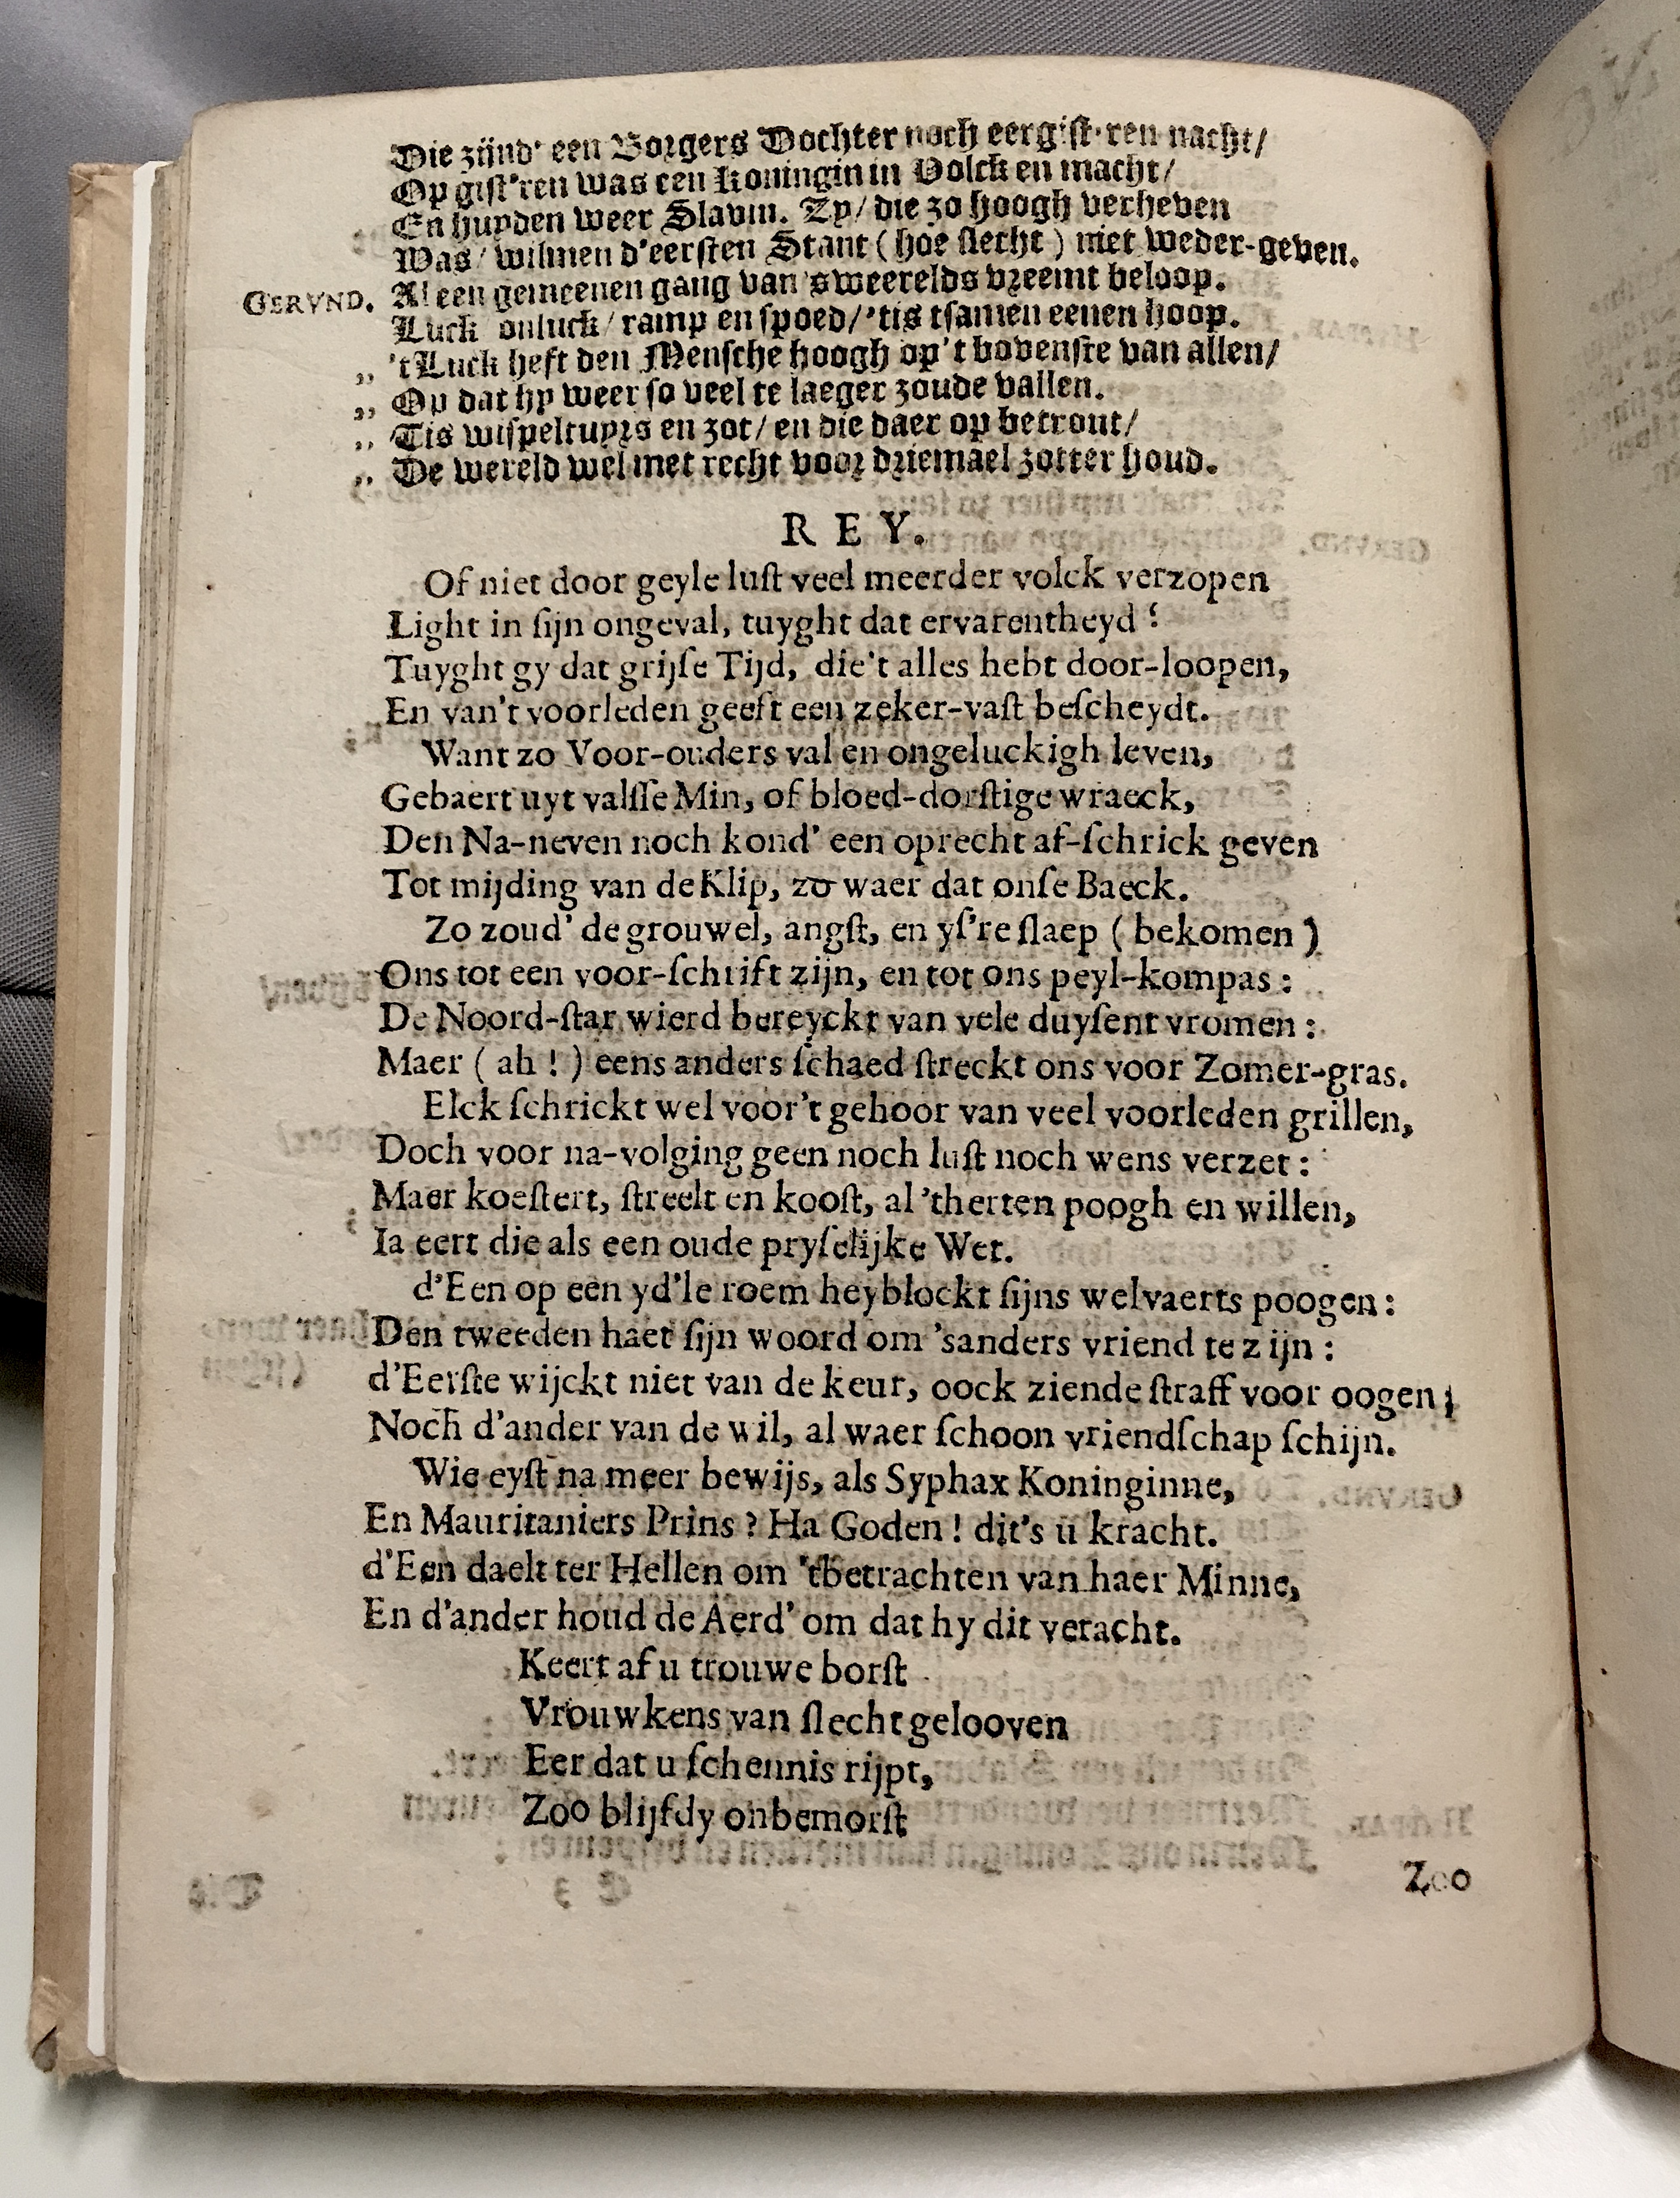 Die zijnd' een Borgers Dochter noch eergist'ren nacht/
Op gist'ren was een Koningin in Volck en macht/
En huyden weer Slavin. Zy/ die zo hoogh verheven
Was/ wilmen d'eersten Stant (hoe slecht) niet weder-geven.
GERVND. Al een gemeenen gang van 'sweerelds vreemt beloop.
Luck onluck/ ramp en spoed/ 'tis tsamen eenen hoop.
,, 't Luck heft den Mensche hoogh op't bovenste van allen/
,, Op dat hy weer so veel te laeger zoude vallen.
,, Tis wispeltuyrs en zot/ en die daer op betrout/
,, De wereld wel met recht voor driemael zotter houd.
REY.
Of niet door geyle lust veel meerder volck verzopen
Light in sijn ongeval, tuyght dat ervarentheyd?
Tuyght gy dat grijse Tijd, die't alles hebt door-loopen,
En van't voorleden geeft een zeker-vast bescheydt.
Want zo Voor-ouders val en ongeluckigh leven,
Gebaert uyt valsse Min, of bloed-dorstige wraeck,
Den Na-neven noch kond' een oprecht af-schrick geven
Tot mijding van de Klip, zo waer dat onse Baeck.
Zo zoud' de grouwel, angst, en ys're slaep (bekomen)
Ons tot een voor-schrift zijn, en tot ons peyl-kompas:
De Noord-star wierd bereyckt van vele duysent vromen:
Maer (ah!) eens anders schaed streckt ons voor Zomer-gras.
Elck schrickt wel voor't gehoor van veel voorleden grillen,
Doch voor na-volging geen noch lust noch wens verzet:
Maer koestert, streelt en koost, al 'therten poogh en willen,
Ia eert die als een oude pryselijke Wet.
d'Een op een yd'le roem heyblockt sijns welvaerts poogen:
Den tweeden haet sijn woord om 'sanders vriend te zijn:
d'Eerste wijckt niet van de keur, oock ziende straff voor oogen;
Noch d'ander van de wil, al waer schoon vriendschap schijn.
Wie eyst na meer bewijs, als Syphax Koninginne,
En Mauritaniers Prins? Ha Goden! dit's ü kracht.
d'Een daelt ter Hellen om 'tbetrachten van haer Minne,
En d'ander houd de Aerd' om dat hy dit veracht.
Keert af u trouwe borst
Vrouwkens van slecht gelooven
Eer dat u schennis rijpt,
Zoo blijfdy onbemorst
Zoo